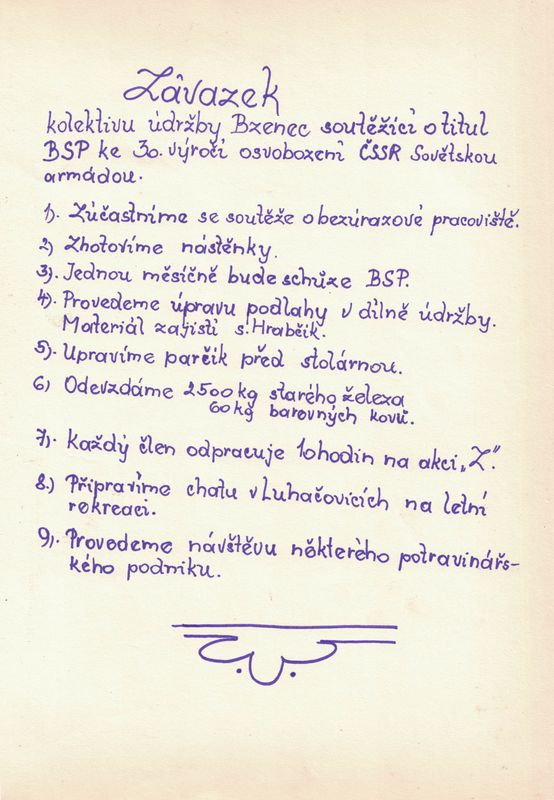 Závazek
kolektivu údržby Bzenec soutěžící o titul
BSP ke 30. výročí osvobození ČSSR Sovětskou
armádou.
1). Zúčastníme se soutěže o bezúrazové pracoviště.
2) Zhotovíme nástěnky.
3). Jednou měsíčně bude schůze BSP.
4). Provedeme úpravu podlahy v dílně údržby.
Materiál zajistí s. Hrabčík.
5). Upravíme parčík před stolárnou.
6) Odevzdáme 2500 kg starého železa
60 kg barevných kovů.
7). Každý člen odpracuje 10 hodin na akci „Z".
8.) Připravíme chatu v Luhačovicích na letní
rekreaci.
9). Provedeme návštěvu některého potravinářs-
kého podniku.